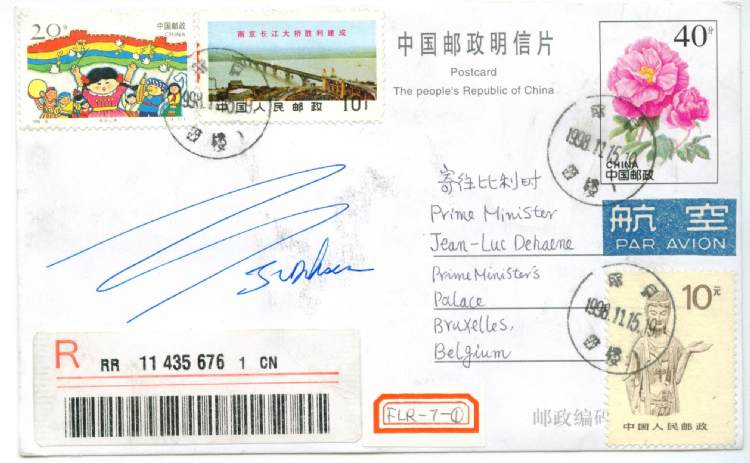 20分
中国邮政
CHINA
南京长江大桥胜利建成
中国人民邮政
10f
1998.11.15.19
中国邮政明信片
Postcard
The people's Republic of China
40分
CHINA
中国邮政
1998.11.15.19
寄往比利时
Prime Minister
Jean-Luc Dehaene
Prime Minister's
Palace
Bruxelles,
Belgium
航空
PAR AVION
10元
中国人民邮政
1998.11.15.19
R
RR 11 435 676 1 CN
FLR-7-①
邮政编码